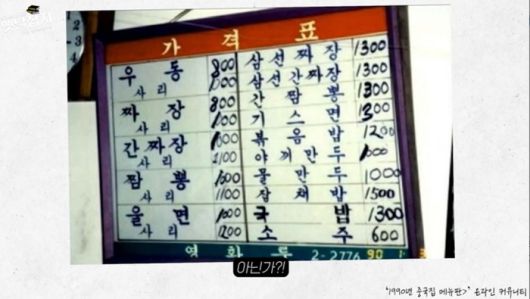 가격표
우동 800
사리 1000
짜장 800
사리
간짜장
사리 1100
짬뽕 1000
사리 1100
울면 1000
사리 1200
삼선짜장 1300
삼선간짜장 1300
간짬뽕 1300
기스면 1300
볶음밥 1200
야끼만두
물만두 1000
잡채밥 1500
국밥 1300
소주 600
영화루 2-2776 90.1.
아닌가?!
'1990년 중국집 메뉴판>' 온라인 커뮤니티